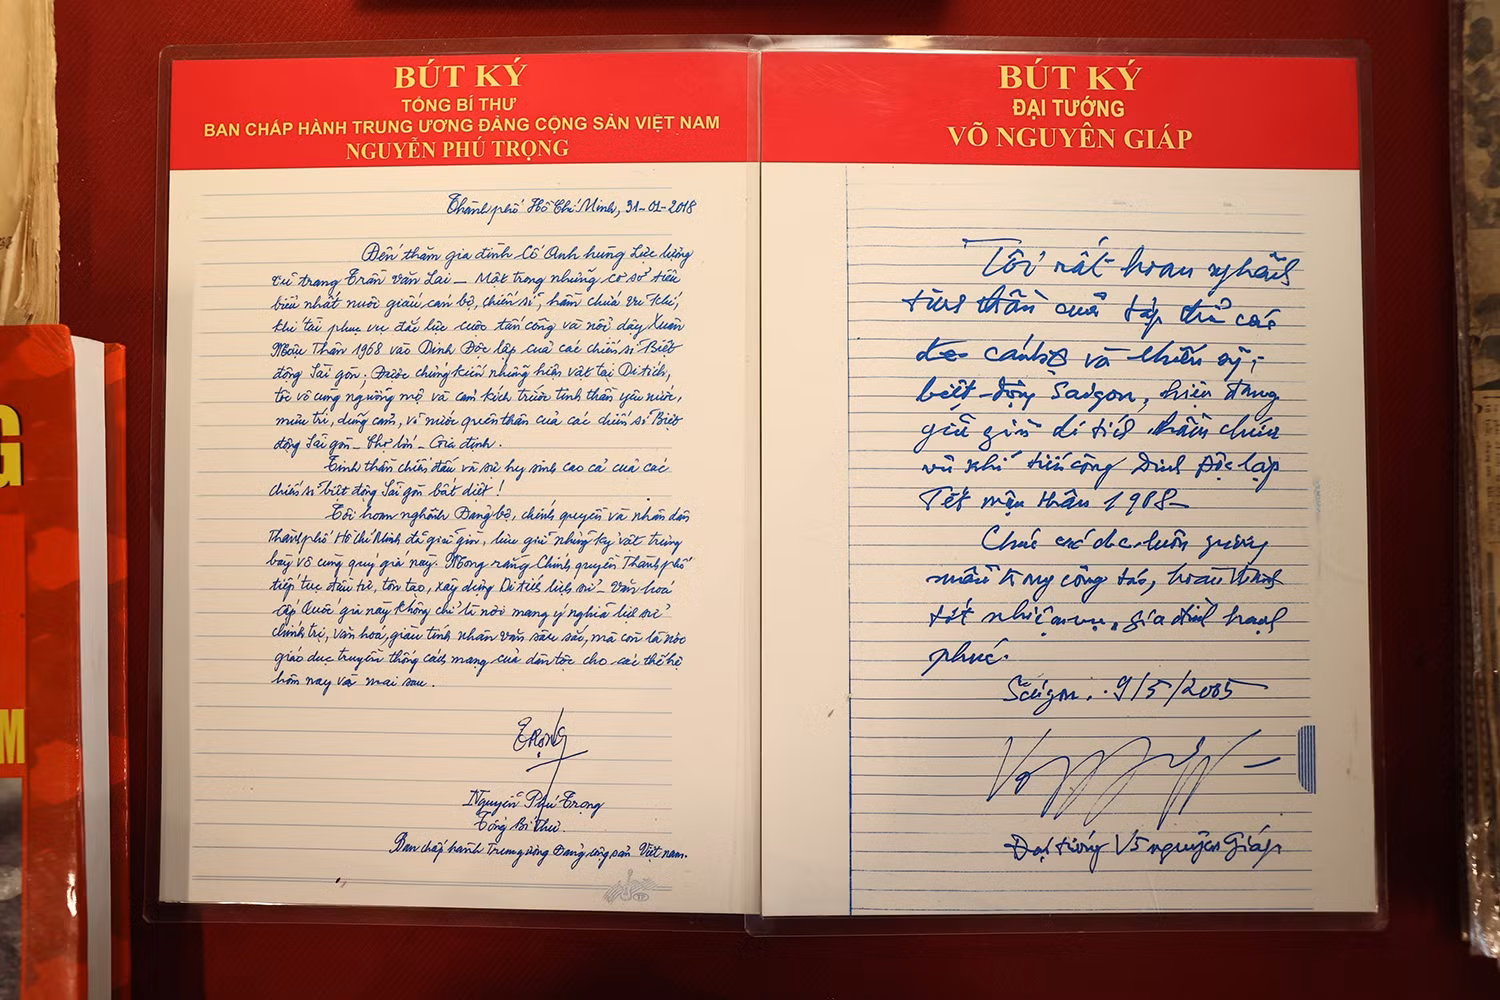 BÚT KÝ
TỔNG BÍ THƯ
BAN CHẤP HÀNH TRUNG ƯƠNG ĐẢNG CỘNG SẢN VIỆT NAM
NGUYỄN PHÚ TRỌNG
Thành phố Hồ Chí Minh, 31-01-2018
Đến thăm gia đình Cố Anh hùng Lực lượng
vũ trang Trần Văn Lai - Một trong những cơ sở tiêu
biểu nhất nuôi giấu cán bộ, chiến sĩ, hầm chứa vũ khí,
khí tài phục vụ đắc lực cuộc tấn công và nổi dậy Xuân
Mậu Thân 1968 vào Dinh Độc lập của các chiến sĩ Biệt
động Sài gòn. Được chứng kiến những hiện vật tại Di tích,
tôi vô cùng ngưỡng mộ và cảm kích trước tinh thần yêu nước,
mưu trí, dũng cảm, vì nước quên thân của các chiến sĩ Biệt
động Sài gòn - Chợ lớn - Gia định.
Tinh thần chiến đấu và sự hy sinh cao cả của các
chiến sĩ biệt động Sài gòn bất diệt!
Tôi hoan nghênh Đảng bộ, chính quyền và nhân dân
Thành phố Hồ Chí Minh đã giữ gìn, lưu giữ những kỷ vật trưng
bày vô cùng quý giá này. Mong rằng Chính quyền Thành phố
tiếp tục đầu tư, tôn tạo, xây dựng Di tích lịch sử - Văn hoá
cấp Quốc gia này không chỉ là nơi mang ý nghĩa lịch sử
chính trị, văn hoá, giàu tính nhân văn sâu sắc, mà còn là nơi
giáo dục truyền thống cách mạng của dân tộc cho các thế hệ
hôm nay và mai sau.
Trọng
Nguyễn Phú Trọng
Tổng Bí Thư
Ban chấp hành Trung ương Đảng cộng sản Việt nam.
BÚT KÝ
ĐẠI TƯỚNG
VÕ NGUYÊN GIÁP
Tôi rất hoan nghênh
tinh thần của tập thể các
đ/c cán bộ và chiến sỹ
biệt động Saigon, hiện đang
giữ gìn di tích hầm chứa
vũ khí tiến công Dinh Độc lập
Tết mậu thân 1968 -
Chúc các đ/c luôn gương
mẫu trong công tác, hoàn thành
tốt nhiệm vụ, gia đình hạnh
phúc.
Sàigon. 9/5/2005
Đại tướng Võ nguyên Giáp
G
M